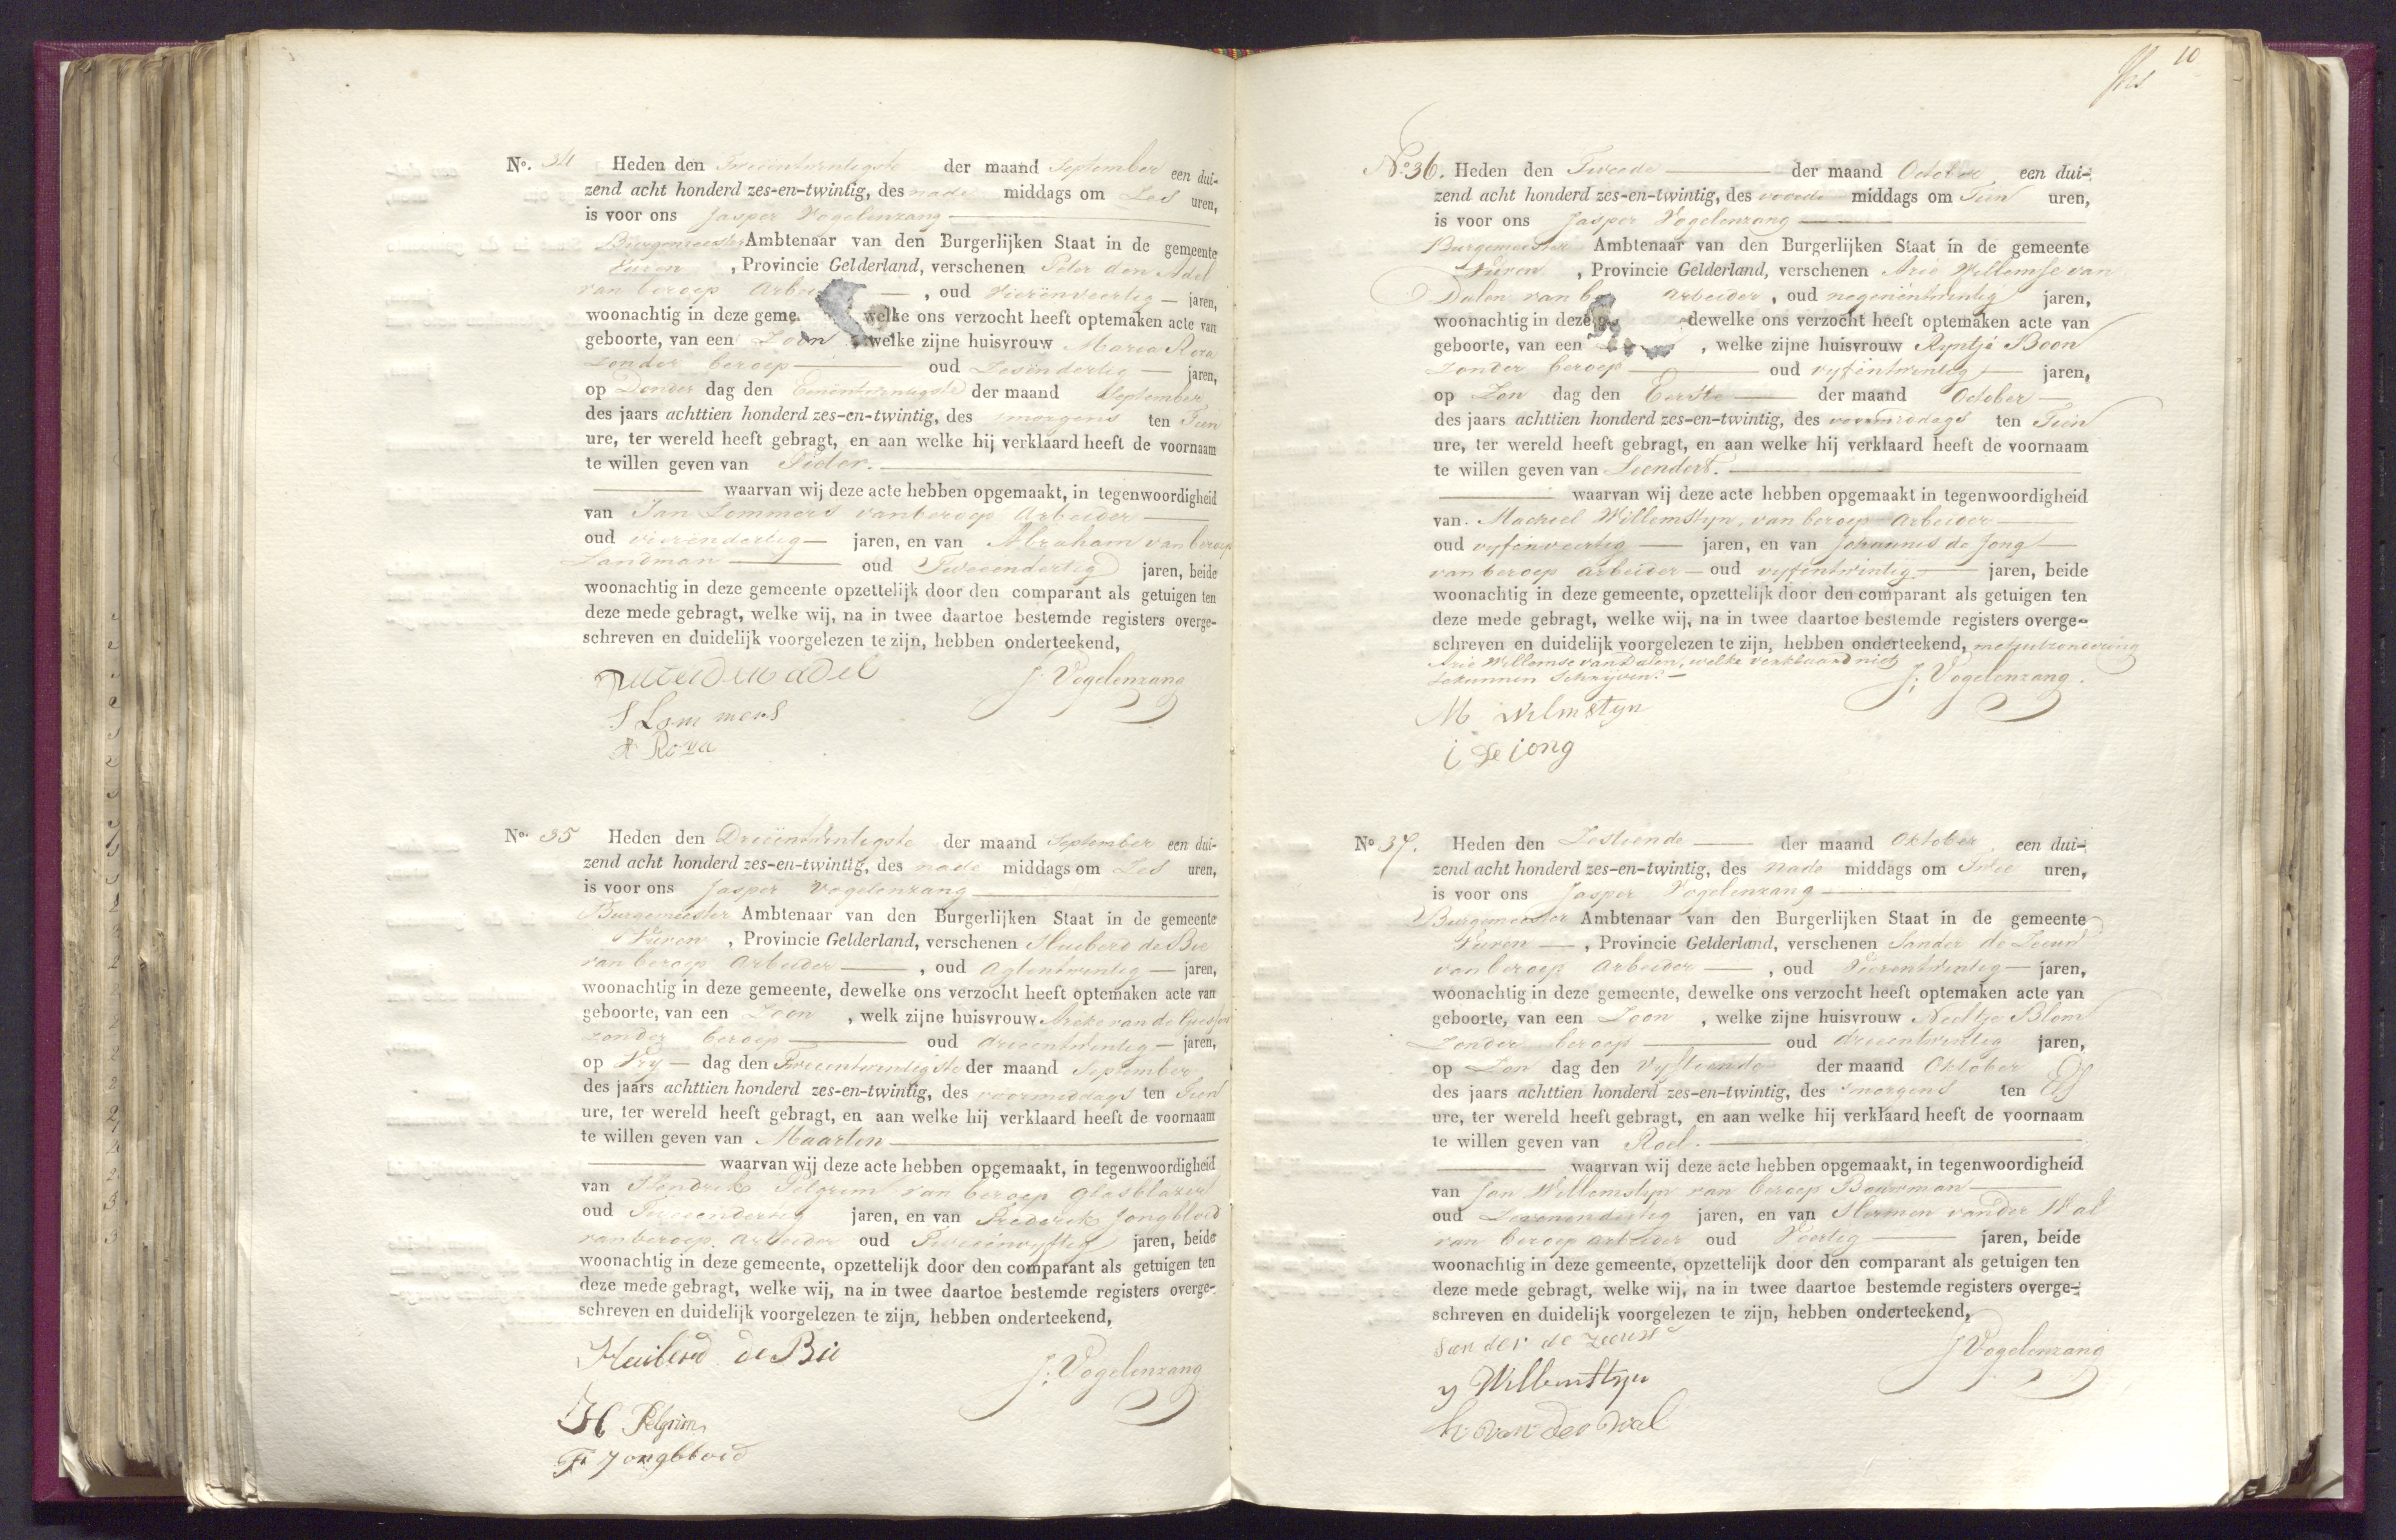 No. 34 Heden den Tweeentwentigste der maand September een dui-
zend acht honderd zes-en-twintig, des nade middags om Zes uren,
is voor ons Jasper Vogelenzang
Burgemeester Ambtenaar van den Burgerlijken Staat in de gemeente
Vuren , Provincie Gelderland, verschenen Peter den Adel
van beroep Arbei , oud Vierenveertig jaren,
woonachtig in deze geme welke ons verzocht heeft optemaken acte van
geboorte, van een Zoon , welke zijne huisvrouw Maria Roza
zonder beroep oud Zesendertig jaren,
op Donder dag den Eenentwentigste der maand September
des jaars achttien honderd zes-en-twintig, des smorgens ten Tien
ure, ter wereld heeft gebragt, en aan welke hij verklaard heeft de voornaam
te willen geven van Pieter.
waarvan wij deze acte hebben opgemaakt, in tegenwoordigheid
van Jan Lommers van beroep Arbeider
oud vierendertig jaren, en van Abraham van beroep
Landman oud Tweeendertig jaren, beide
woonachtig in deze gemeente opzettelijk door den comparant als getuigen ten
deze mede gebragt, welke wij, na in twee daartoe bestemde registers overge-
schreven en duidelijk voorgelezen te zijn, hebben onderteekend,
J. Vogelenzang
Lommers
A Roza
No. 35 Heden den Drieëntwentigste der maand September een dui-
zend acht honderd zes-en-twintig, des nade middags om Zes uren,
is voor ons Jasper Vogelenzang
Burgemeester Ambtenaar van den Burgerlijken Staat in de gemeente
Vuren , Provincie Gelderland, verschenen Huiberd de Bie
van beroep Arbeider , oud Agtentwentig jaren,
woonachtig in deze gemeente, dewelke ons verzocht heeft optemaken acte van
geboorte, van een Zoon , welk zijne huisvrouw van de
zonder beroep oud drieentwentig jaren,
op Vry dag den Tweeentwentigste der maand September
des jaars achttien honderd zes-en-twintig, des voormiddags ten Tien
ure, ter wereld heeft gebragt, en aan welke hij verklaard heeft de voornaam
te willen geven van Maarten
waarvan wij deze acte hebben opgemaakt, in tegenwoordigheid
van Hendrik Pelgrim van beroep Glasblazer
oud Tweeendertig jaren, en van Frederik Jongbloed
van beroep Arbeider oud Tweeenvyftig jaren, beide
woonachtig in deze gemeente, opzettelijk door den comparant als getuigen ten
deze mede gebragt, welke wij, na in twee daartoe bestemde registers overge-
schreven en duidelijk voorgelezen te zijn, hebben onderteekend,
Huiberd de Bie J. Vogelenzang
H Pelgrim
F Jongbloed
10
No 36. Heden den Tweede der maand October een dui-
zend acht honderd zes-en-twintig, des voorde middags om Tien uren,
is voor ons Jasper Vogelenzang
Burgemeester Ambtenaar van den Burgerlijken Staat in de gemeente
Vuren , Provincie Gelderland, verschenen Arie Willemse van
Dalen van be Arbeider , oud negenëntwentig jaren,
woonachtig in deze ge dewelke ons verzocht heeft optemaken acte van
geboorte, van een , welke zijne huisvrouw Ryntje Boon
zonder beroep oud vyfentwentig jaren,
op Zon dag den Eerste der maand October
des jaars achttien honderd zes-en-twintig, des voormiddags ten Tien
ure, ter wereld heeft gebragt, en aan welke hij verklaard heeft de voornaam
te willen geven van Leendert.
waarvan wij deze acte hebben opgemaakt in tegenwoordigheid
van Machiel Willemstyn, van beroep Arbeider
oud vyfenveertig jaren, en van Johannes de Jong
van beroep Arbeider oud vyfentwintig jaren, beide
woonachtig in deze gemeente, opzettelijk door den comparant als getuigen ten
deze mede gebragt, welke wij, na in twee daartoe bestemde registers overge-
schreven en duidelijk voorgelezen te zijn, hebben onderteekend, met uitzondering
Arie Willemse van Dalen, welke verklaard niet
te kunnen schryven. J. Vogelenzang.
M wilmstyn
i de jong
No 37. Heden den Zestiende der maand Oktober een dui-
zend acht honderd zes-en-twintig, des Nade middags om Twee uren,
is voor ons Jasper Vogelenzang
Burgemeester Ambtenaar van den Burgerlijken Staat in de gemeente
Vuren , Provincie Gelderland, verschenen Sander de Zeeuw
van beroep Arbeider , oud Vierentwentig jaren,
woonachtig in deze gemeente, dewelke ons verzocht heeft optemaken acte van
geboorte, van een Zoon , welke zijne huisvrouw Neeltje Blom
Zonder beroep oud drieentwentig jaren,
op Zon dag den Vyftiende der maand Oktober
des jaars achttien honderd zes-en-twintig, des smorgens ten Elf
ure, ter wereld heeft gebragt, en aan welke hij verklaard heeft de voornaam
te willen geven van Roel.
waarvan wij deze acte hebben opgemaakt, in tegenwoordigheid
van Jan Willemstyn van beroep Bouwman
oud Zevenendertig jaren, en van Hermen van der Wal
van beroep arbeider oud Veertig jaren, beide
woonachtig in deze gemeente, opzettelijk door den comparant als getuigen ten
deze mede gebragt, welke wij, na in twee daartoe bestemde registers overge-
schreven en duidelijk voorgelezen te zijn, hebben onderteekend,
sander de zeeuw J Vogelenzang
y Willemstyn
h van der wal